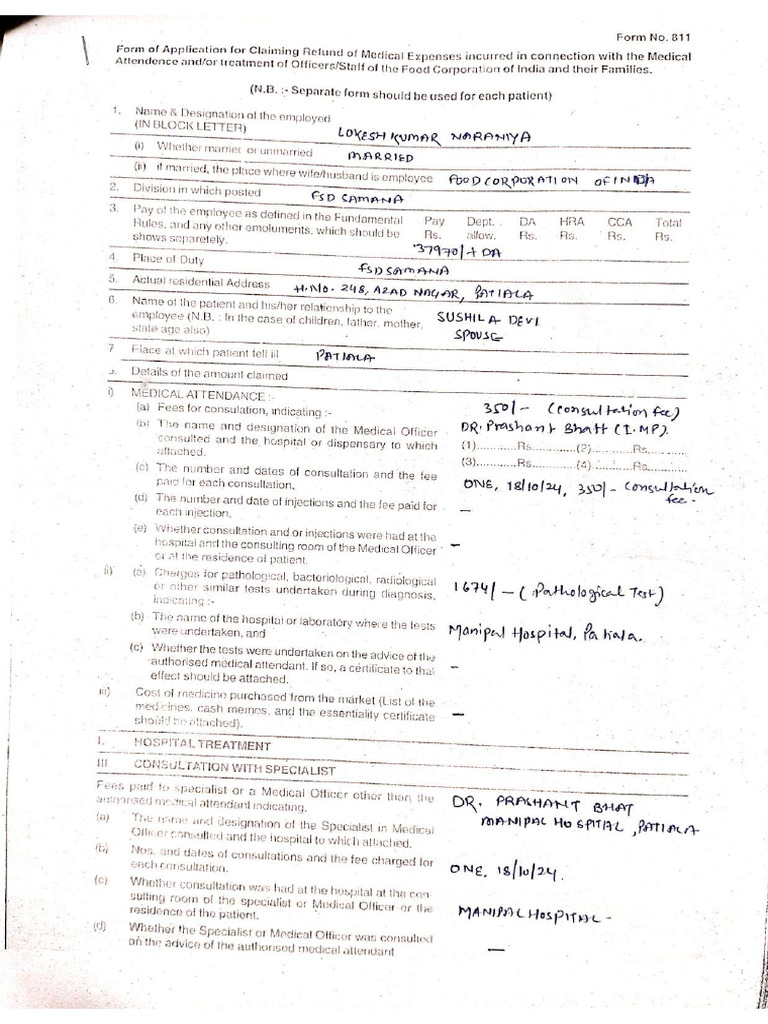 Form No. 811
Form of Application for Claiming Refund of Medical Expenses incurred in connection with the Medical
Attendence and/or treatment of Officers/Staff of the Food Corporation of India and their Families.
(N.B. :- Separate form should be used for each patient)
1. Name & Designation of the employed
(IN BLOCK LETTER) LOKESH KUMAR NARANIYA
(i) Whether married or unmarried MARRIED
(ii) if married, the place where wife/husband is employee FOOD CORPORATION OF INDIA
2. Division in which posted FSD SAMANA
3. Pay of the employee as defined in the Fundamental Pay Dept. DA HRA CCA Total
Rules, and any other emoluments, which should be Rs. allow. Rs. Rs. Rs. Rs.
shows separetely. 37970/+ DA
4. Place of Duty FSD SAMANA
5. Actual residential Address H.No. 248, AZAD NAGAR, PATIALA
6. Name of the patient and his/her relationship to the
employee (N.B. : In the case of children, father, mother, SUSHILA DEVI
state age also) SPOUSE
7 Place at which patient fell ill PATIALA
Details of the amount claimed
i) MEDICAL ATTENDANCE :-
(a) Fees for consulation, indicating :- 350/- (Consultation fee)
(b) The name and designation of the Medical Officer DR. Prashant Bhatt (I.MP).
consulted and the hospital or dispensary to which (1)...........Rs............(2)...........Rs.
attached. (3)...........Rs............(4)...........Rs.
(c) The number and dates of consultation and the fee
paid for each consultation. ONE, 18/10/24, 350/- Consultation
fee.
(d) The number and date of injections and the fee paid for
each injection. –
(e) Whether consultation and or injections were had at the
hospital and the consulting room of the Medical Officer –
or at the residence of patient.
ii) (a) Charges for pathological, bacteriological, radiological
or other similar tests undertaken during diagnosis, 1674/- (Pathological Test)
indicating :-
(b) The name of the hospital or laboratory where the tests
were undertaken, and Manipal Hospital, Patiala.
(c) Whether the tests were undertaken on the advice of the
authorised medical attendant. If so, a certificate to that –
effect should be attached.
iii) Cost of medicine purchased from the market (List of the
medicines, cash memos, and the essentiality certificate –
should be attached).
I. HOSPITAL TREATMENT
III CONSULTATION WITH SPECIALIST
Fees paid to specialist or a Medical Officer other than the
authorised medical attendant indicating. DR. PRASHANT BHAT
(a) The name and designation of the Specialist in Medical MANIPAL HOSPITAL, PATIALA
Officer consulted and the hospital to which attached.
(b) Nos. and dates of consultations and the fee charged for
each consultation. ONE, 18/10/24.
(c) Whether consultation was had at the hospital at the con-
sulting room of the specialist or Medical Officer or the MANIPAL HOSPITAL -
residence of the patient.
(d) Whether the Specialist or Medical Officer was consulted
on the advice of the authorised medical attendant –